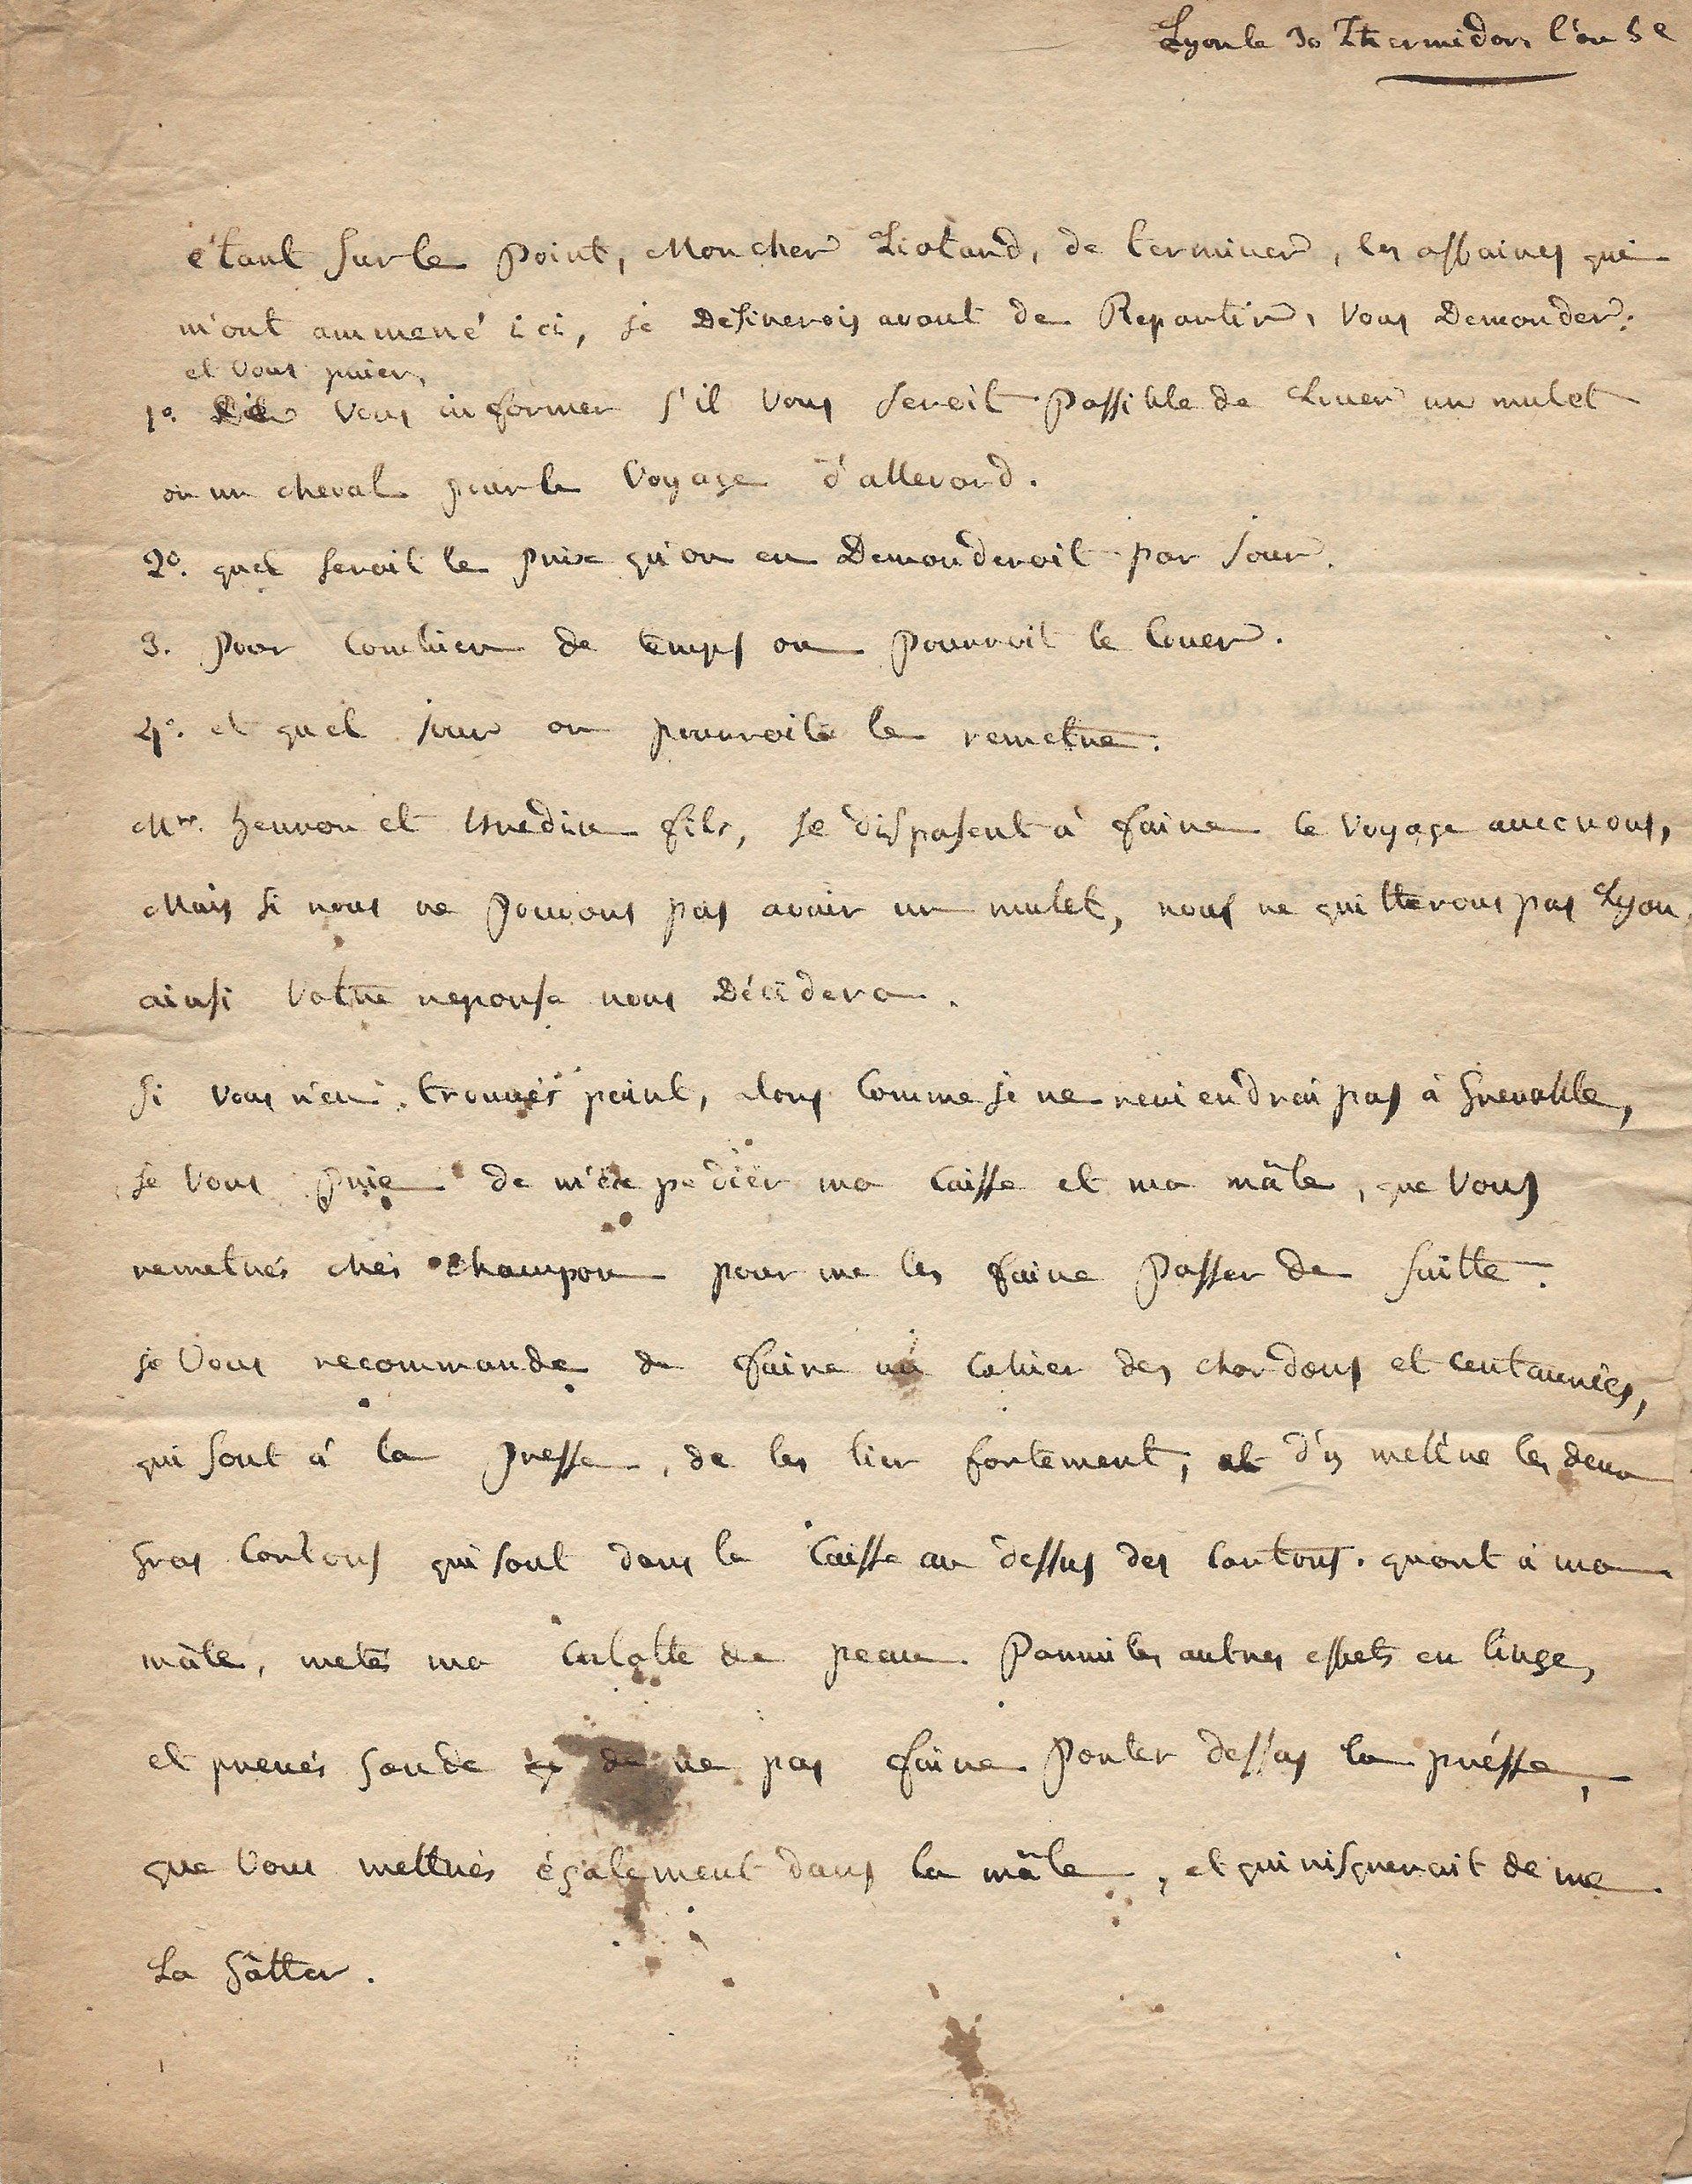 Lyon le 30 Thermidor l'an 5e
étant sur le point, Mon cher Liotard, de terminer, les affaires qui
m'ont ammené ici, je Desirerois avant de Repartir, vous Demander.
et vous prier,
1o. De vous informer s'il vous seroit possible de Louer un mulet
ou un cheval pour le voyage d'allevard.
2o. quel seroit le prix qu'on en Demanderoit par jour.
3. pour combien de temps on pourroit le louer.
4o. et quel jour on pourroit le remetre.
Mrs. henon et fils, se disposent à faire le voyage avec nous,
Mais si nous ne pouvons pas avoir un mulet, nous ne quitterons pas Lyon,
ainsi votre reponse nous Décidera.
si vous n'en trouvés point, alors comme je ne reviendrai pas à Grenoble,
je vous prie de m'expedier ma caisse et ma mâle, que vous
remetrés chés champon pour me les faire passer de suitte.
je vous recommande de faire un cahier des chardons et centaurées,
qui sont à la presse, de les lier fortement, et d'y mettre les deux
gros cartons qui sont dans la caisse au dessus des cartons. quant à ma
mâle, metés ma culotte de peau parmi les autres effets en linge,
et prenés garde de ne pas faire porter dessus la présse,
que vous mettrés également dans la mâle, et qui risquerait de me
La gâtter.